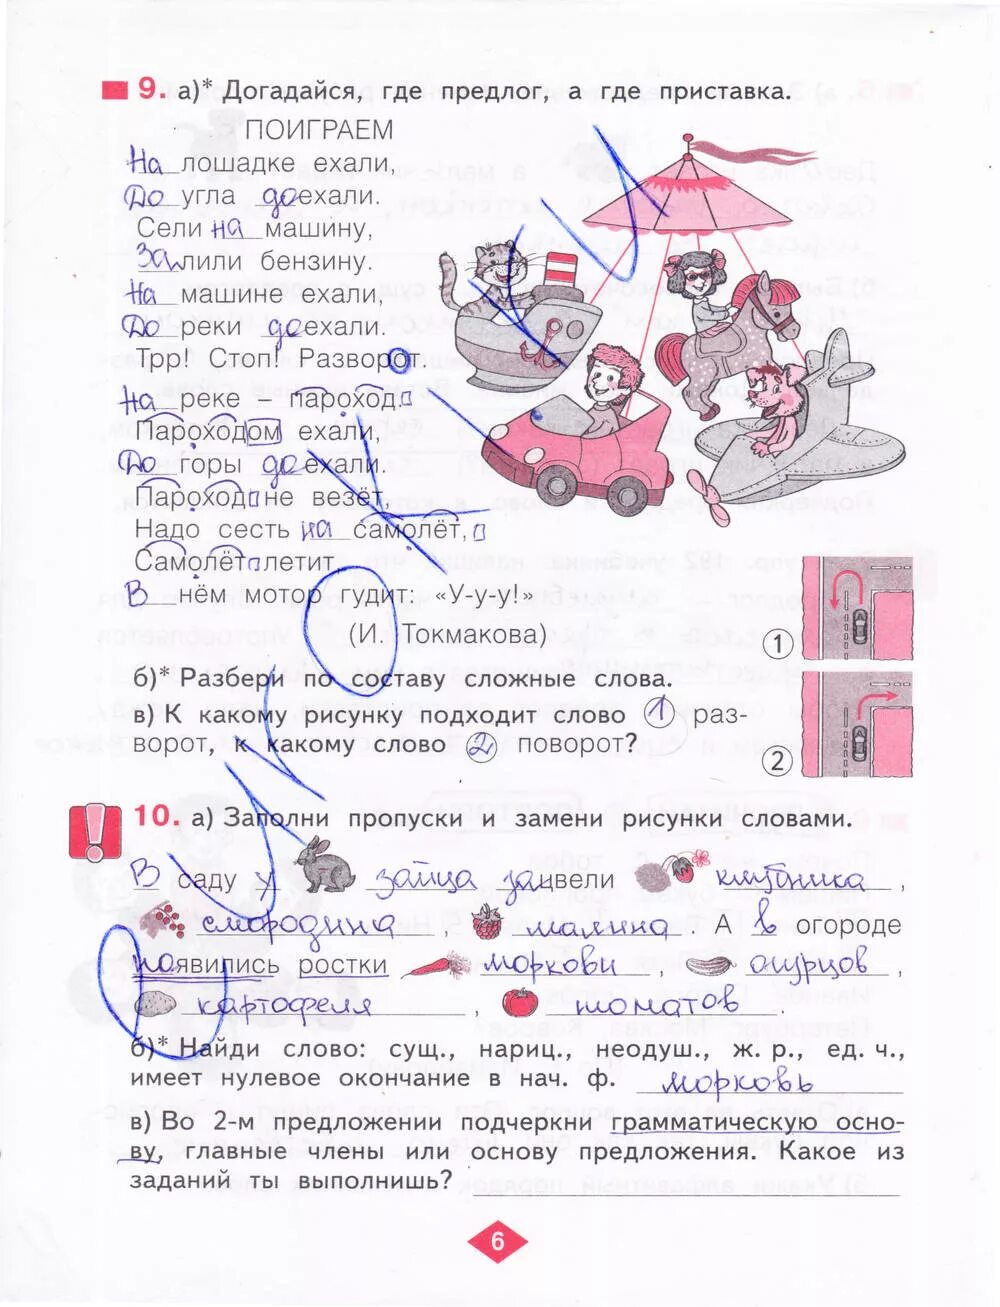 9. а)* Догадайся, где предлог, а где приставка.
ПОИГРАЕМ
На лошадке ехали,
До угла доехали.
Сели на машину,
Залили бензину.
На машине ехали,
До реки доехали.
Трр! Стоп! Разворот
На реке – пароход.
Пароходом ехали,
До горы доехали.
Пароход не везёт,
Надо сесть на самолёт,
Самолёт летит,
В нём мотор гудит: «У-у-у!»
(И. Токмакова)
1
б)* Разбери по составу сложные слова.
в) К какому рисунку подходит слово 1 раз-
ворот, к какому слово 2 поворот?
2
10. а) Заполни пропуски и замени рисунки словами.
В саду у зайца зацвели клубника,
смородина, малина. А в огороде
появились ростки моркови, огурцов,
картофеля, томатов.
б)* Найди слово: сущ., нариц., неодуш., ж. р., ед. ч.,
имеет нулевое окончание в нач. ф. морковь
в) Во 2-м предложении подчеркни грамматическую осно-
ву, главные члены или основу предложения. Какое из
заданий ты выполнишь?
6